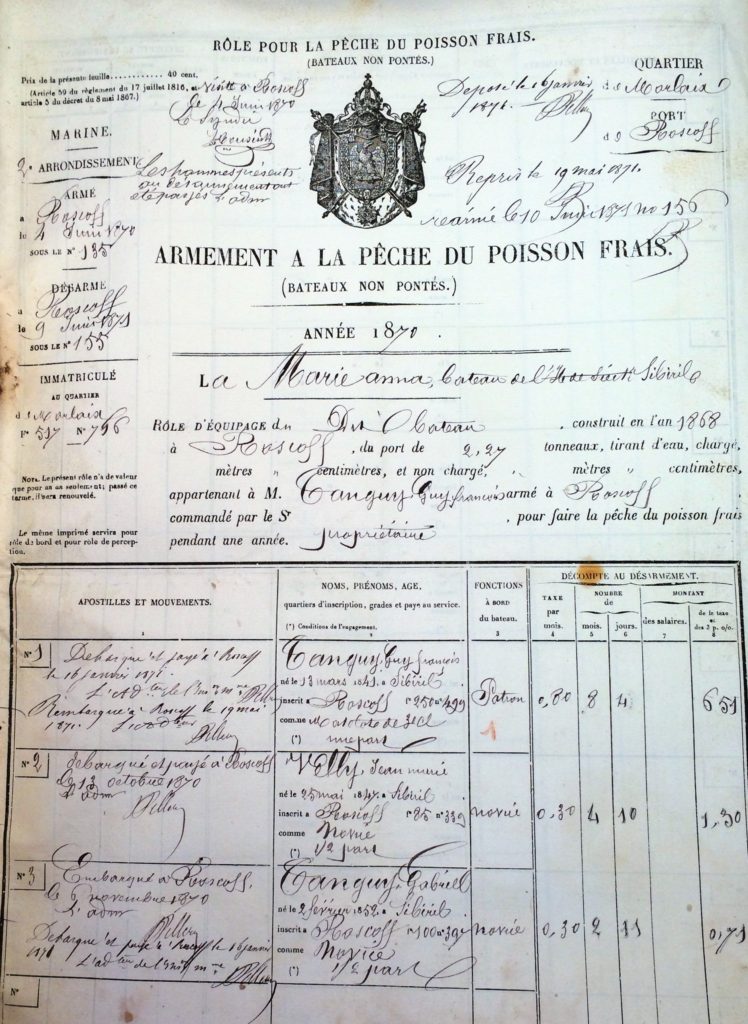 RÔLE POUR LA PÊCHE DU POISSON FRAIS.
(BATEAUX NON PONTÉS.)
Prix de la présente feuille............ 40 cent.
(Article 50 du règlement de 17 juillet 1816, et
article 5 du décret du 8 mai 1867.)
Visité à Roscoff
le 4 Juin 1870
Le Syndic
MARINE.
2e ARRONDISSEMENT
Les hommes présents
au désarmement ont
été payés
ARMÉ
a Roscoff
le 4 Juin 1870
SOUS LE N° 135
DÉSARMÉ
a Roscoff
le 9 Juin 1871
SOUS LE N° 155
IMMATRICULÉ
AU QUARTIER
de Morlaix
F° 517 N° 796
NOTA. Le présent rôle n'a de valeur
que pour un an seulement; passé ce
terme, il sera renouvelé.
Le même imprimé servira pour
rôle de bord et pour rôle de percep-
tion.
Déposé le 16 janvier
1871.
QUARTIER
de Morlaix
PORT
de Roscoff
Repris le 19 mai 1871.
réarmé le 10 Juin 1871 no 156
ARMEMENT A LA PÊCHE DU POISSON FRAIS.
(BATEAUX NON PONTÉS.)
ANNÉE 1870.
LA Marie anna, bateau de l' Sibiril
RÔLE D'ÉQUIPAGE du Dit Bateau, construit en l'an 1868
à Roscoff, du port de 2,27 tonneaux, tirant d'eau, chargé,
mètres " centimètres, et non chargé, " mètres " centimètres,
appartenant à M. Tanguy, Guy françois armé à Roscoff
commandé par le Sr propriétaire, pour faire la pêche du poisson frais
pendant une année.
APOSTILLES ET MOUVEMENTS.
1
NOMS, PRÉNOMS, AGE,
quartiers d'inscription, grades et paye au service.
(*) Conditions de l'engagement.
2
FONCTIONS
À BORD
du bateau.
3
DÉCOMPTE AU DÉSARMEMENT.
TAXE
par
mois.
4
NOMBRE
de
mois.
5
jours.
6
MONTANT
des salaires.
7
de la taxe
des 3 p. o/o.
8
N° 1
Débarqué et payé à Roscoff
le 16 janvier 1871.
Rembarqué à Roscoff le 19 mai
1871.
Tanguy, Guy françois
né le 13 mars 1841 à Sibiril
inscrit à Roscoff f° 250 n° 499
comme Matelot de
(*) une part
Patron
1
0,80 8 4 6 51
N° 2
débarqué et payé à Roscoff
le 13 octobre 1870
Velly, Jean marie
né le 25 mai 1847 à Sibiril
inscrit à Roscoff f° 85 n° 339
comme Novice
(*) 1/2 part
novice
0,30 4 10 1,30
N° 3
Embarqué à Roscoff,
le 6 novembre
1870
Débarqué et payé à Roscoff le 16 janvier
1871
Tanguy, Gabriel
né le 2 février 1852 à Sibiril
inscrit à Roscoff f° 100 n° 397
comme Novice
(*) 1/2 part
novice
0.30 2 11 0,71
N°